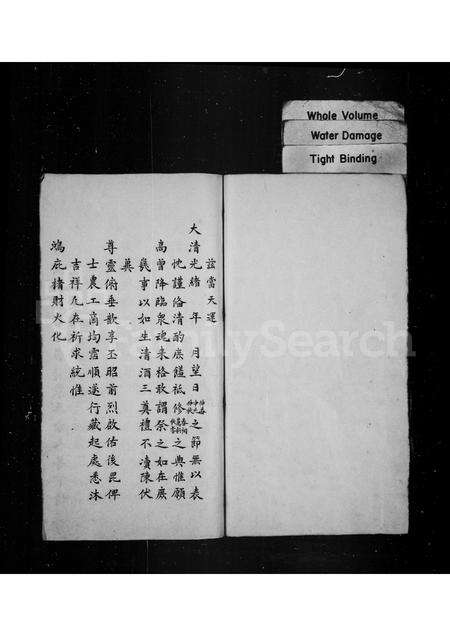 Whole Volume
Water Damage
Tight Binding
茲當天運
大清光緒 年 月望日 之節無以表
忱謹俻清酌庶饈祗修 之典惟願
高曾降臨衆魂來格敢謂祭之如在庶
幾事以如生清酒三奠禮不瀆陳伏
冀
尊靈俯垂歆享丕昭前烈啟佑後昆俾
士農工商均霑順遂行藏起處悉沐
吉祥凢在祈求統惟
鴻庇楮財火化
FamilySearch